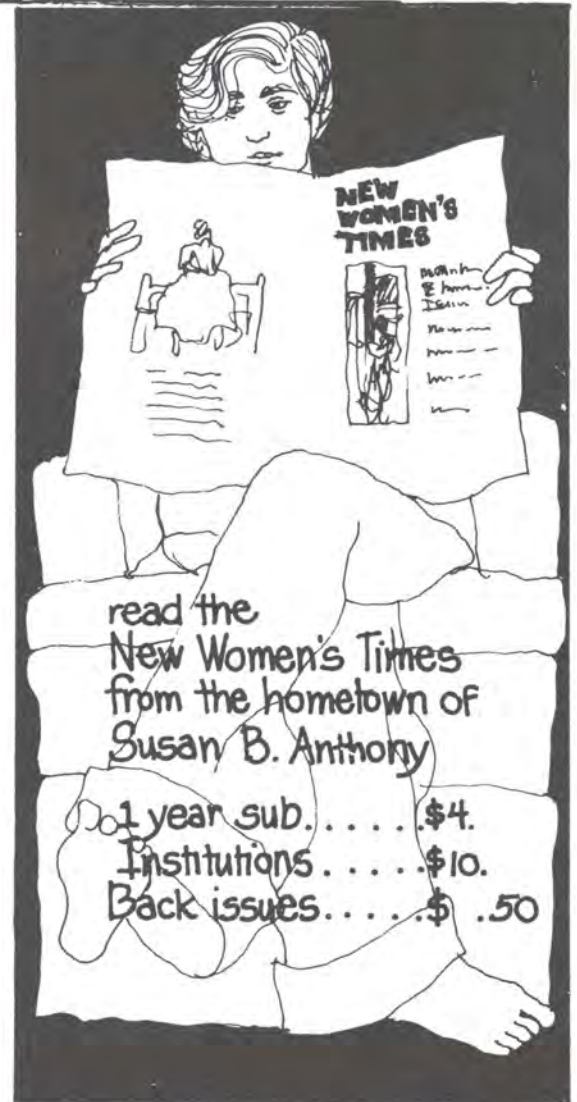 NEW
WOMEN'S
TIMES
read the
New Women's Times
from the hometown of
Susan B. Anthony
1 year sub......$4.
Institutions.....$10.
Back issues.....$ .50